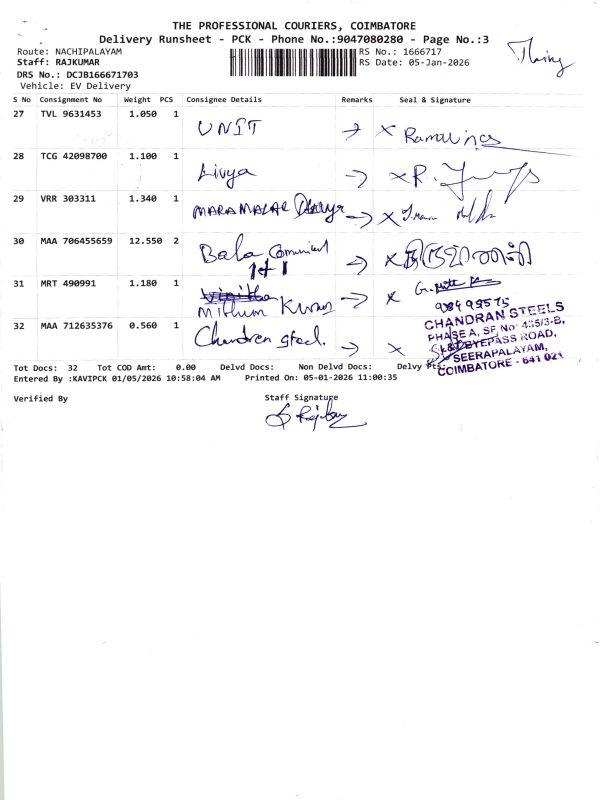 THE PROFESSIONAL COURIERS, COIMBATORE
Delivery Runsheet - PCK - Phone No.:9047080280 - Page No.:3
Route: NACHIPALAYAM RS No.: 1666717
Staff: RAJKUMAR RS Date: 05-Jan-2026
DRS No.: DCJB166671703
Vehicle: EV Delivery
S No Consignment No Weight PCS Consignee Details Remarks Seal & Signature
27 TVL 9631453 1.050 1 UNIT
28 TCG 42098700 1.100 1 Livya
29 VRR 303311 1.340 1 MARAMALAR
30 MAA 706455659 12.550 2 Bala
1+1
31 MRT 490991 1.180 1 Mithun Kumar
32 MAA 712635376 0.560 1 Chandren steel.
CHANDRAN STEELS
PHASE A, SF No: 435/3-B,
L&T BYEPASS ROAD,
SEERAPALAYAM,
COIMBATORE - 641 021
Tot Docs: 32 Tot COD Amt: 0.00 Delvd Docs: Non Delvd Docs: Delvy Pts:
Entered By :KAVIPCK 01/05/2026 10:58:04 AM Printed On: 05-01-2026 11:00:35
Verified By Staff Signature